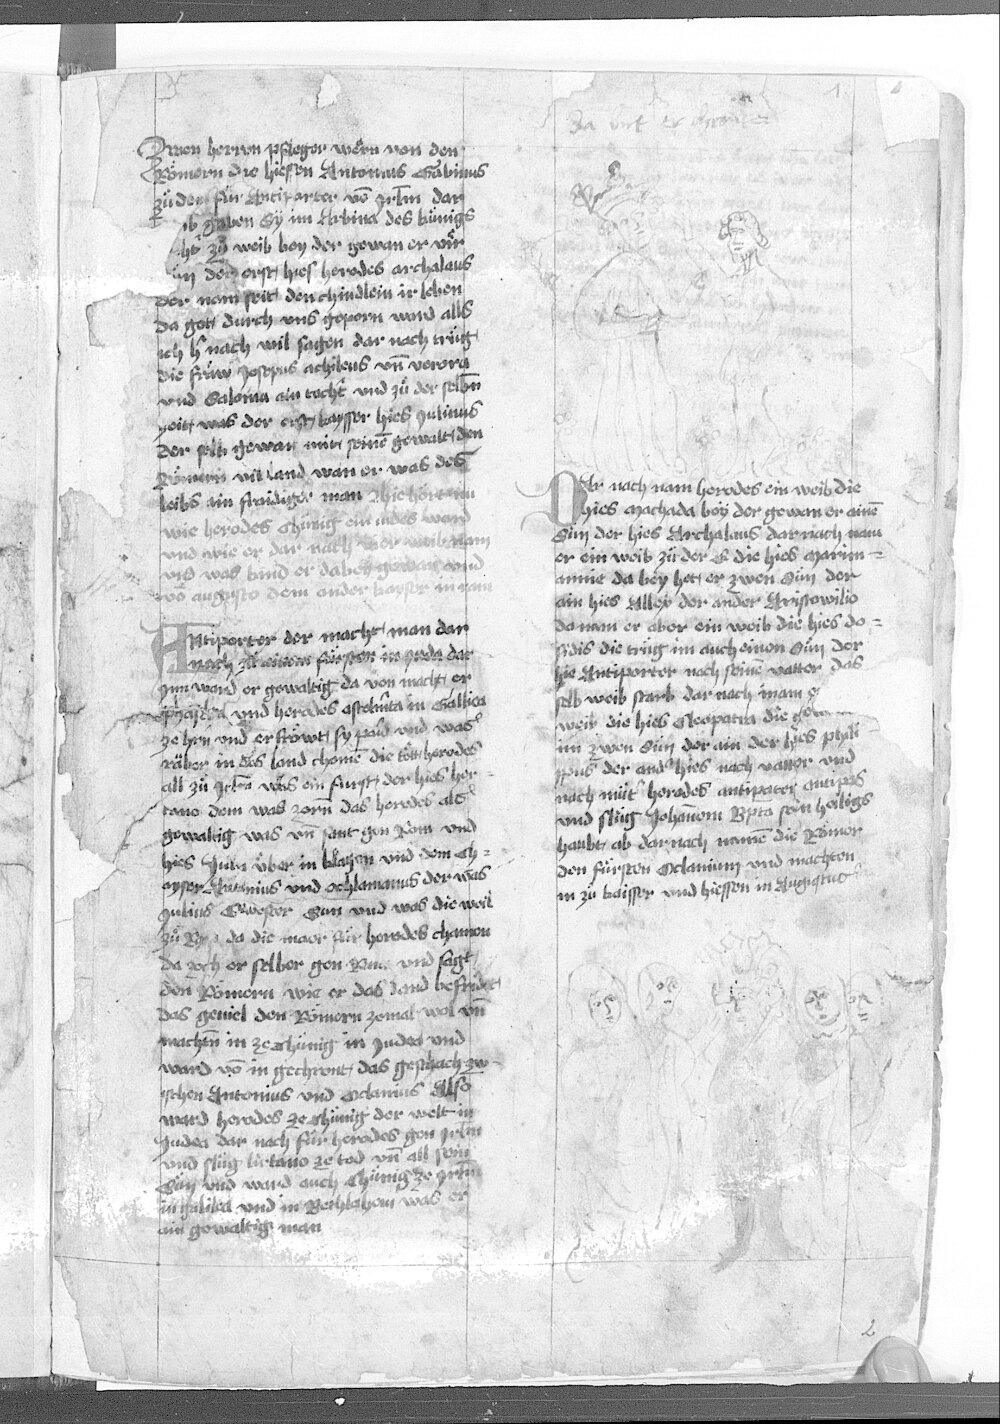 Zwen herren pfleger wern von den
Römern die hiessen Antonius Gabinus
zu der für Antiparter võ Jrlm dar
ib gaben Sy im Arbina des künigs
zu weib bey der gewan er vir
Sün der erst hies herodes archalaus
der nam seit den chindlein ir leben
da gott durch vns geporn ward alls
ich h nach wil sagen dar nach trüg
die fraw Josepus achileus vñ verora
vnd Saloma ain tocht vnd zu der selbñ
zeit was der erst kaysser hies Julius
der selb gewan mit seinē gewalt den
Römern vil land wan er was des
leibs ain fraidiger man Hie hört nu
wie herodes chünig ein iudes ward
vnd wie er dar nach weib nam
vnd was kind er dabey gewan vnd
võ augusto dem ander kaysser
Antiporter der macht man dar
nach zu einem fürsten in Juda dar
Jnn ward er gewaltig da von macht er
vnd herodes in Gallilea
ze hrn vnd er frowt sy paid vnd was
räber in das land chomē die tött herodes
all zu Jrlm was ein fürst der hies her-
cano dem was zorn das herodes als
gewaltig was vñ sant gen Rom vnd
hies Juen über in klagen vnd dem Ch=
ayser Antonius vnd der was
Julius Swester Sun vnd was die weil
zu da die maer für herodes chamen
da zoch er selber gen Rom vnd sagt
den Römern wie er das land befridet
das geuiel den Römern zemal wol vñ
machtñ in ze chünig in Judea vnd
ward võ in gechront das geschach zw-
schen Antonius vnd Octauius Also
ward herodes ze chünig der welt in
Judea dar nach für herodes gen Jrlm
vnd slug hirkano ze tod vñ all sein
Sün vnd ward auch Chünig ze Jrlm
in galilea vnd in Bethlahem was er
ain gewaltig man
Dar nach nam herodes ein weib die
hies machada bey der gewan er ainē
Sün der hies Archalaus dar nach nam
er ein weib zu der E die hies marim=
anme da bey hett er zwen Sün der
ain hies Allex der ander Aristowilio
da nam er aber ein weib die hies do=
sidis die trüg im auch einen Sün der
hie Antiporter nach seinē vatter das
selb weib starb dar nach nam
weib die hies Cleopatra die
im zwen Sün der ain der hies phili
ppus der and hies nach vatter vnd
nach müt herodes antipater antipas
vnd slug Johañem Bpta sein heiligs
haubt ab dar nach namē die Römer
den fürsten Octauium vnd machten
in zu kaisser vnd hiessen in Augustus
2